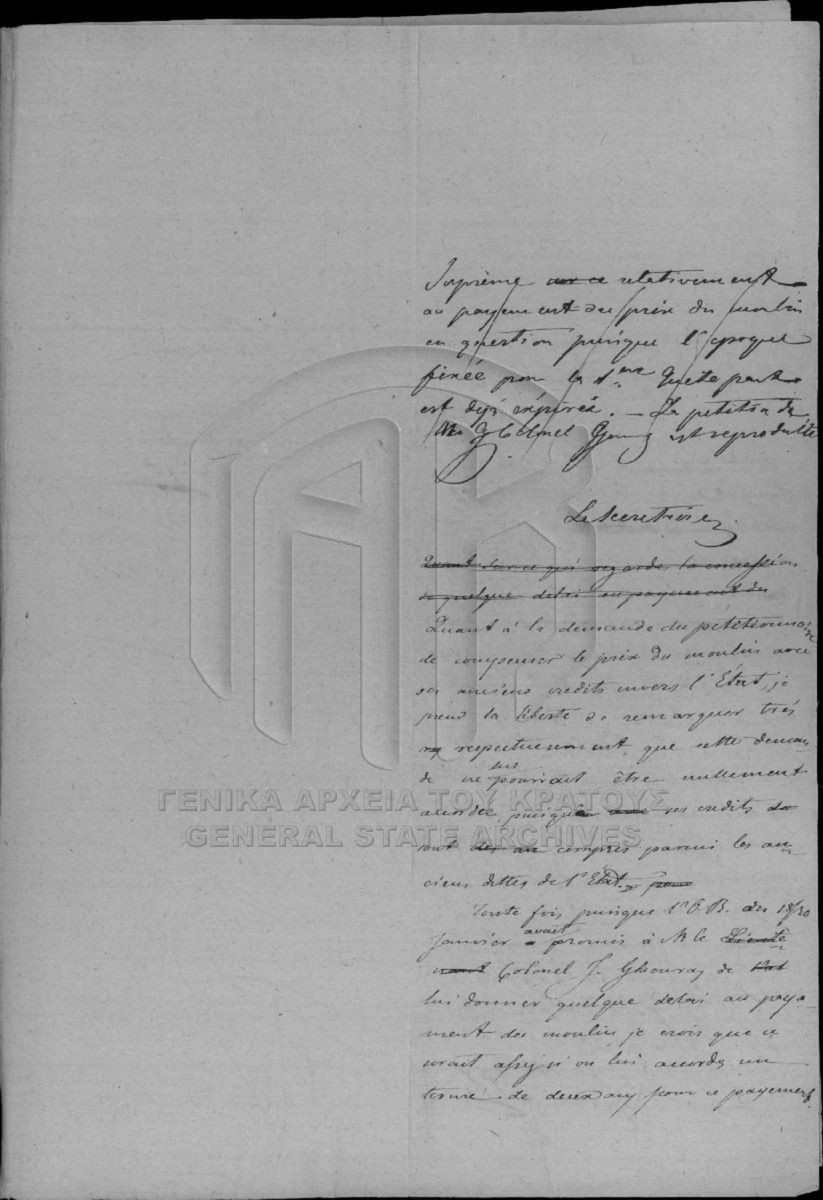 Suprème sur ce relativement
au payement du prix du moulin
en question puisque l'epoque
fixée pour la 1ere quote part
est déjà expirée. — La petition de
Mr Colonel est reproduite
Le Secretaire
Quant sur ce qui regarde la concession
de quelque delai au payement du
Quant à la demande du petitionnaire
de compenser le prix du moulin avec
ses anciens credits envers l'État, je
prend la liberté de remarquer trés
respectueusement, que cette deman
de ne lui pourrait être nullement
accordée, puisque ses credits
sont compris parmi les an
ciens dettes de l'État.
Toute fois puisque l'O.R. du 18/30
Janvier avait promis à Mr le Lieute
nant Colonel J. Ghouras de
lui donner quelque delai au paye-
ment du moulin je crois que ce
serait assez si on lui accorde un
terme de deux ans pour ce payement
ΓΕΝΙΚΑ ΑΡΧΕΙΑ ΤΟΥ ΚΡΑΤΟΥΣ
GENERAL STATE ARCHIVES